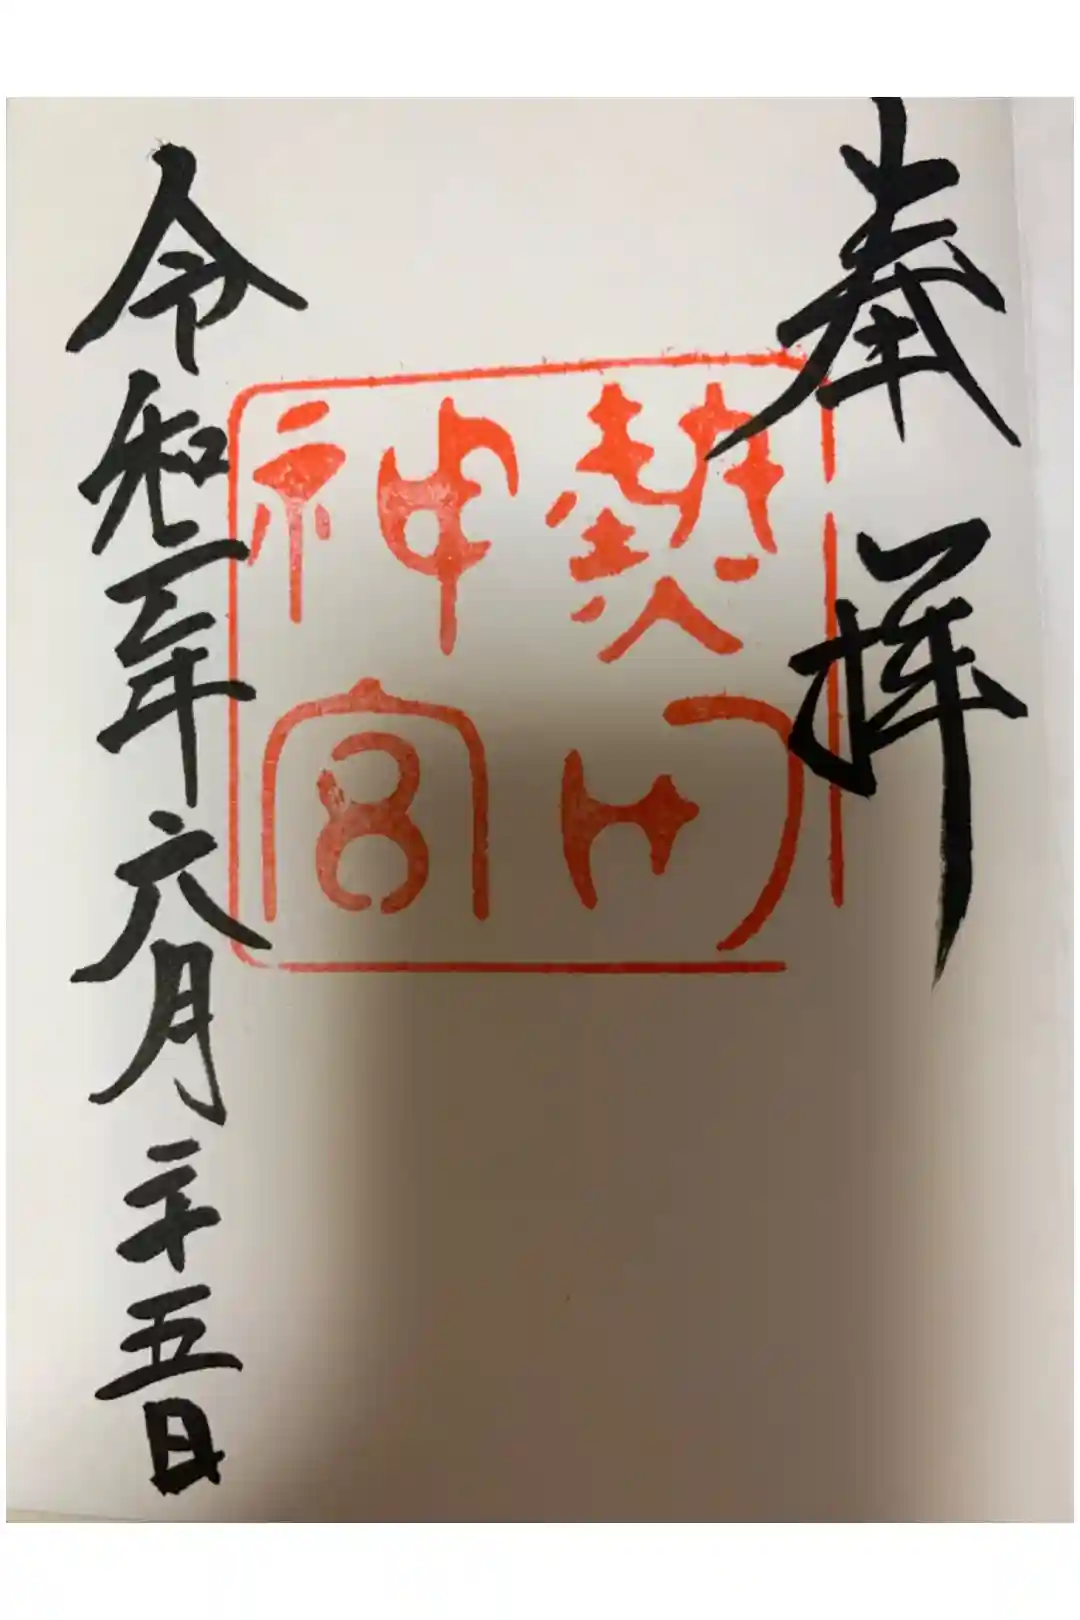 奉拝
熱田
神宮
令和二年六月二十五日